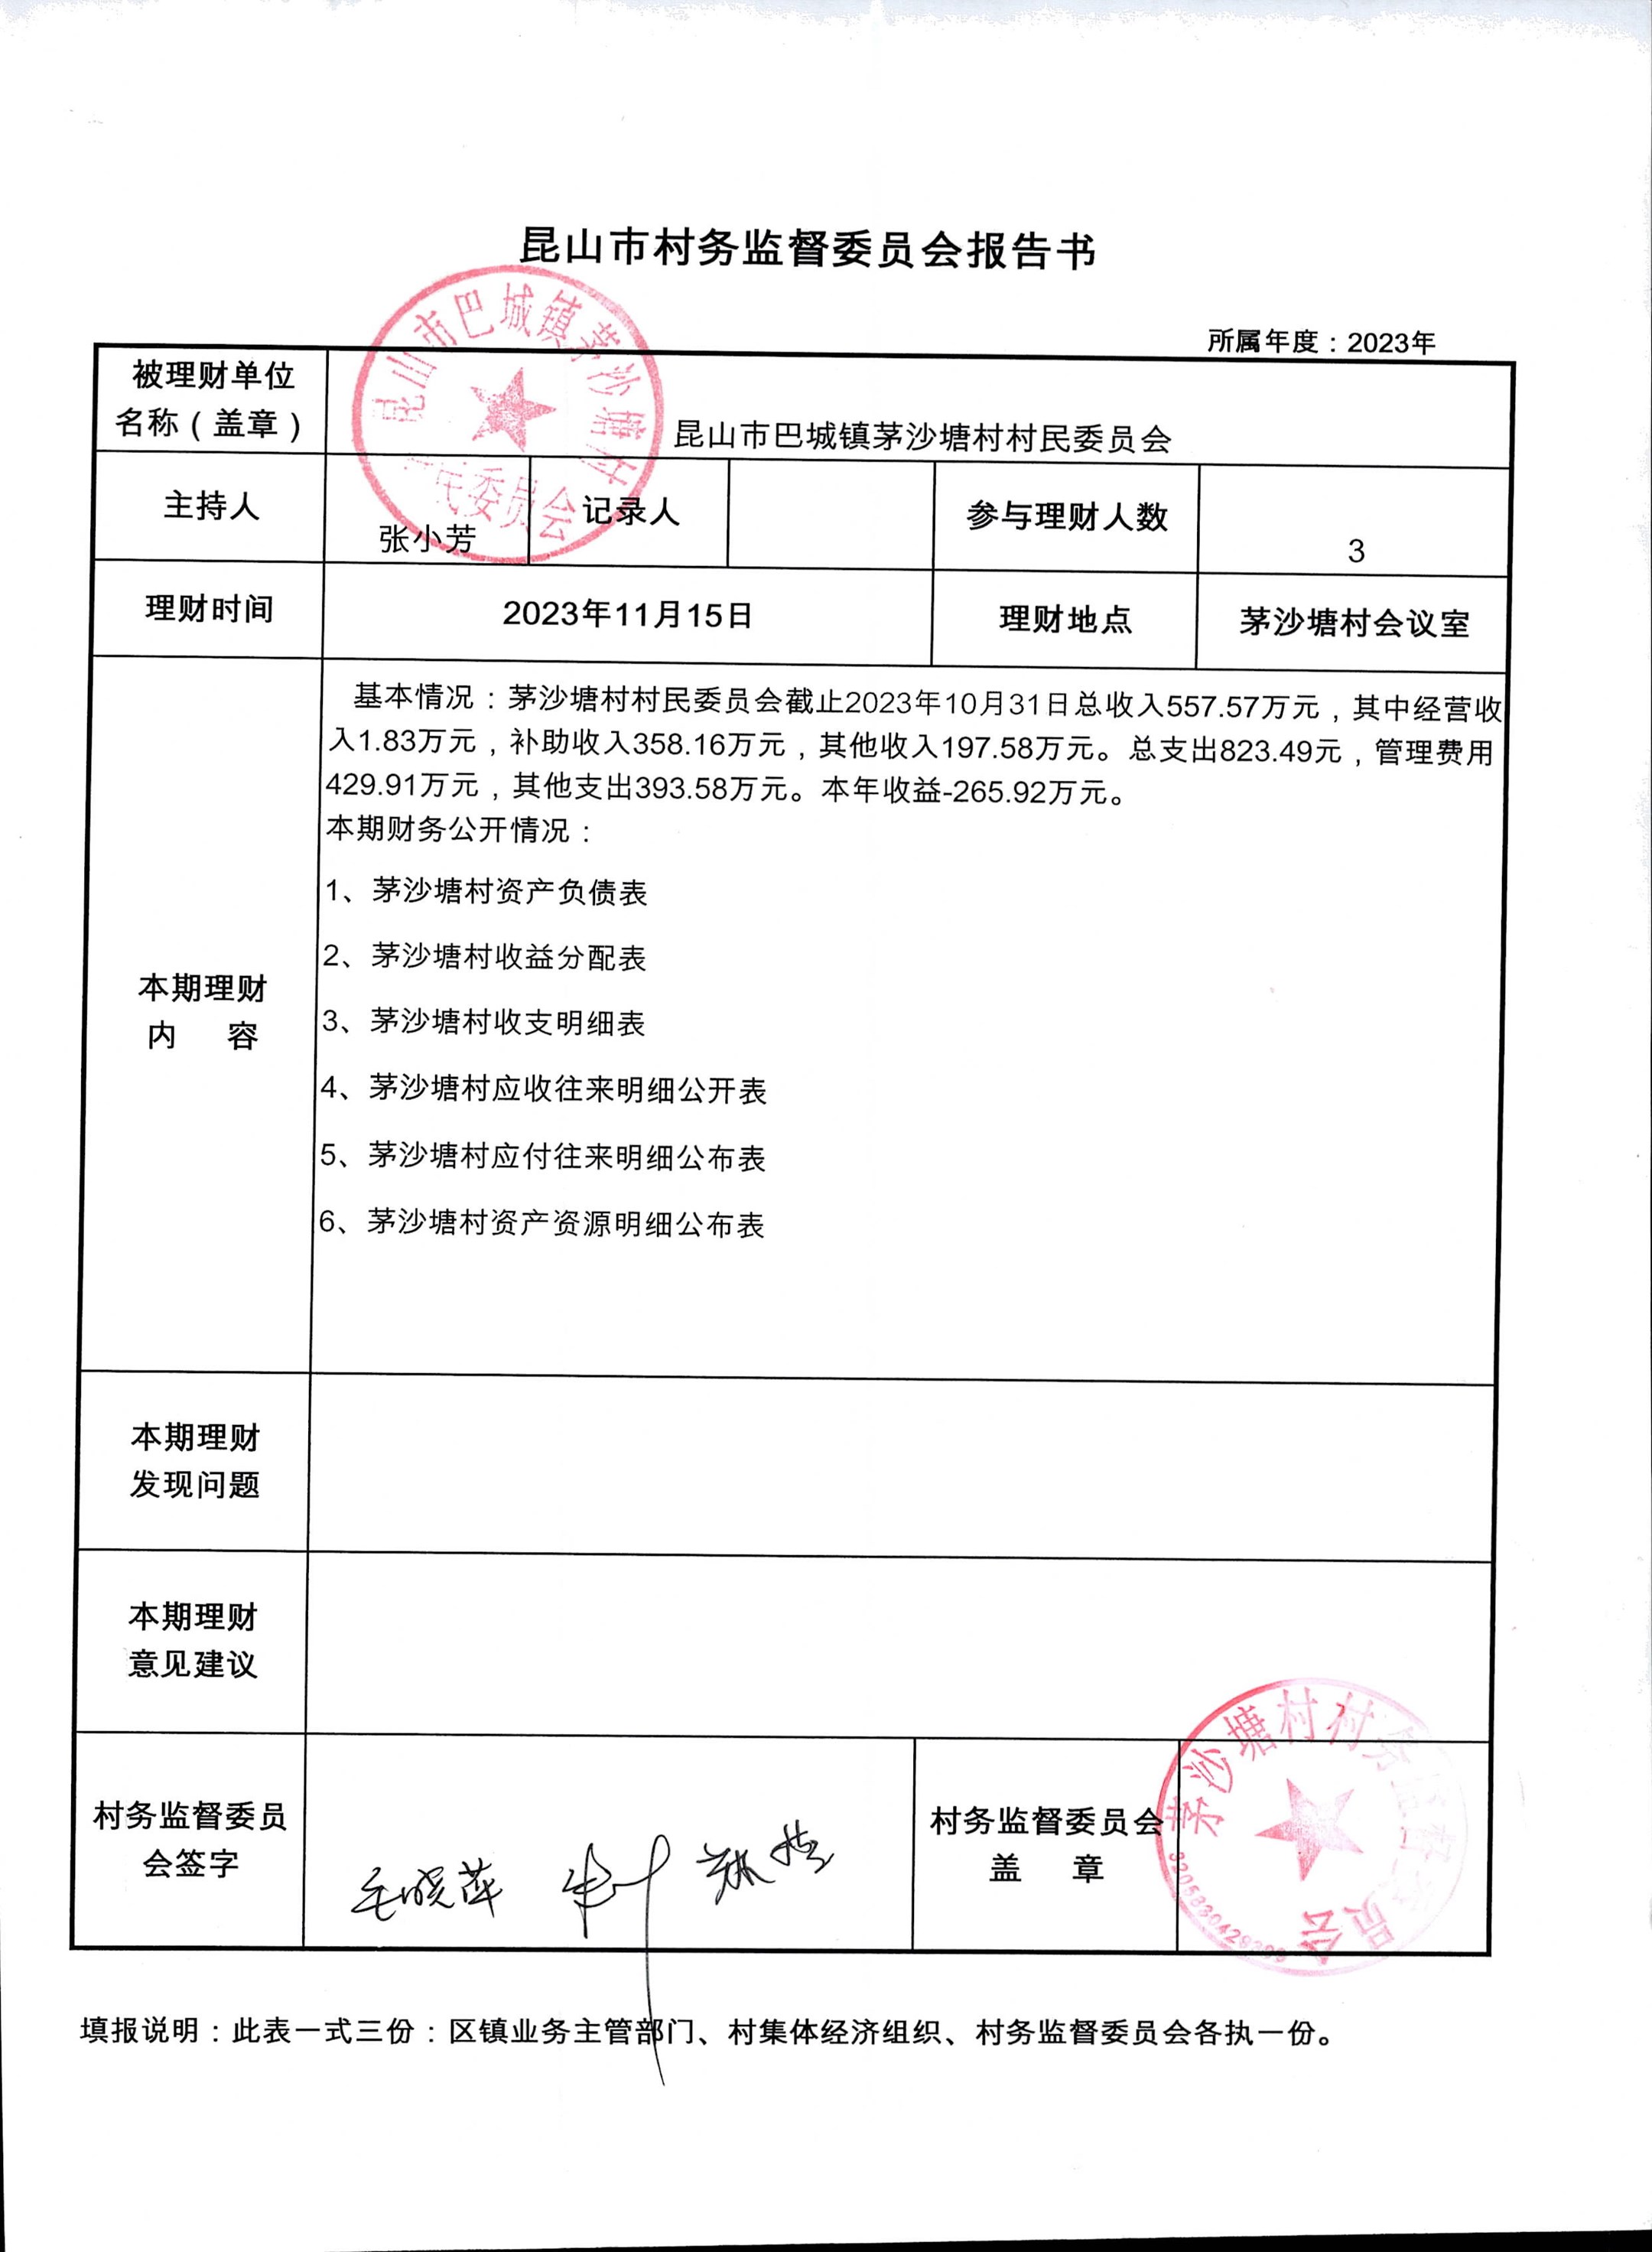 昆山市村务监督委员会报告书
所属年度：2023年
被理财单位
名称（盖章）
昆山市巴城镇茅沙塘村村民委员会
昆山市巴城镇茅沙塘村
民委员会
主持人
张小芳
记录人
参与理财人数
3
理财时间
2023年11月15日
理财地点
茅沙塘村会议室
基本情况：茅沙塘村村民委员会截止2023年10月31日总收入557.57万元，其中经营收
入1.83万元，补助收入358.16万元，其他收入197.58万元。总支出823.49元，管理费用
429.91万元，其他支出393.58万元。本年收益-265.92万元。
本期财务公开情况：
1、茅沙塘村资产负债表
2、茅沙塘村收益分配表
3、茅沙塘村收支明细表
4、茅沙塘村应收往来明细公开表
5、茅沙塘村应付往来明细公布表
6、茅沙塘村资产资源明细公布表
本期理财
内 容
本期理财
发现问题
本期理财
意见建议
村务监督委员
会签字
毛晓萍
村务监督委员会
盖 章
茅沙塘村村务监督委员会
填报说明：此表一式三份：区镇业务主管部门、村集体经济组织、村务监督委员会各执一份。